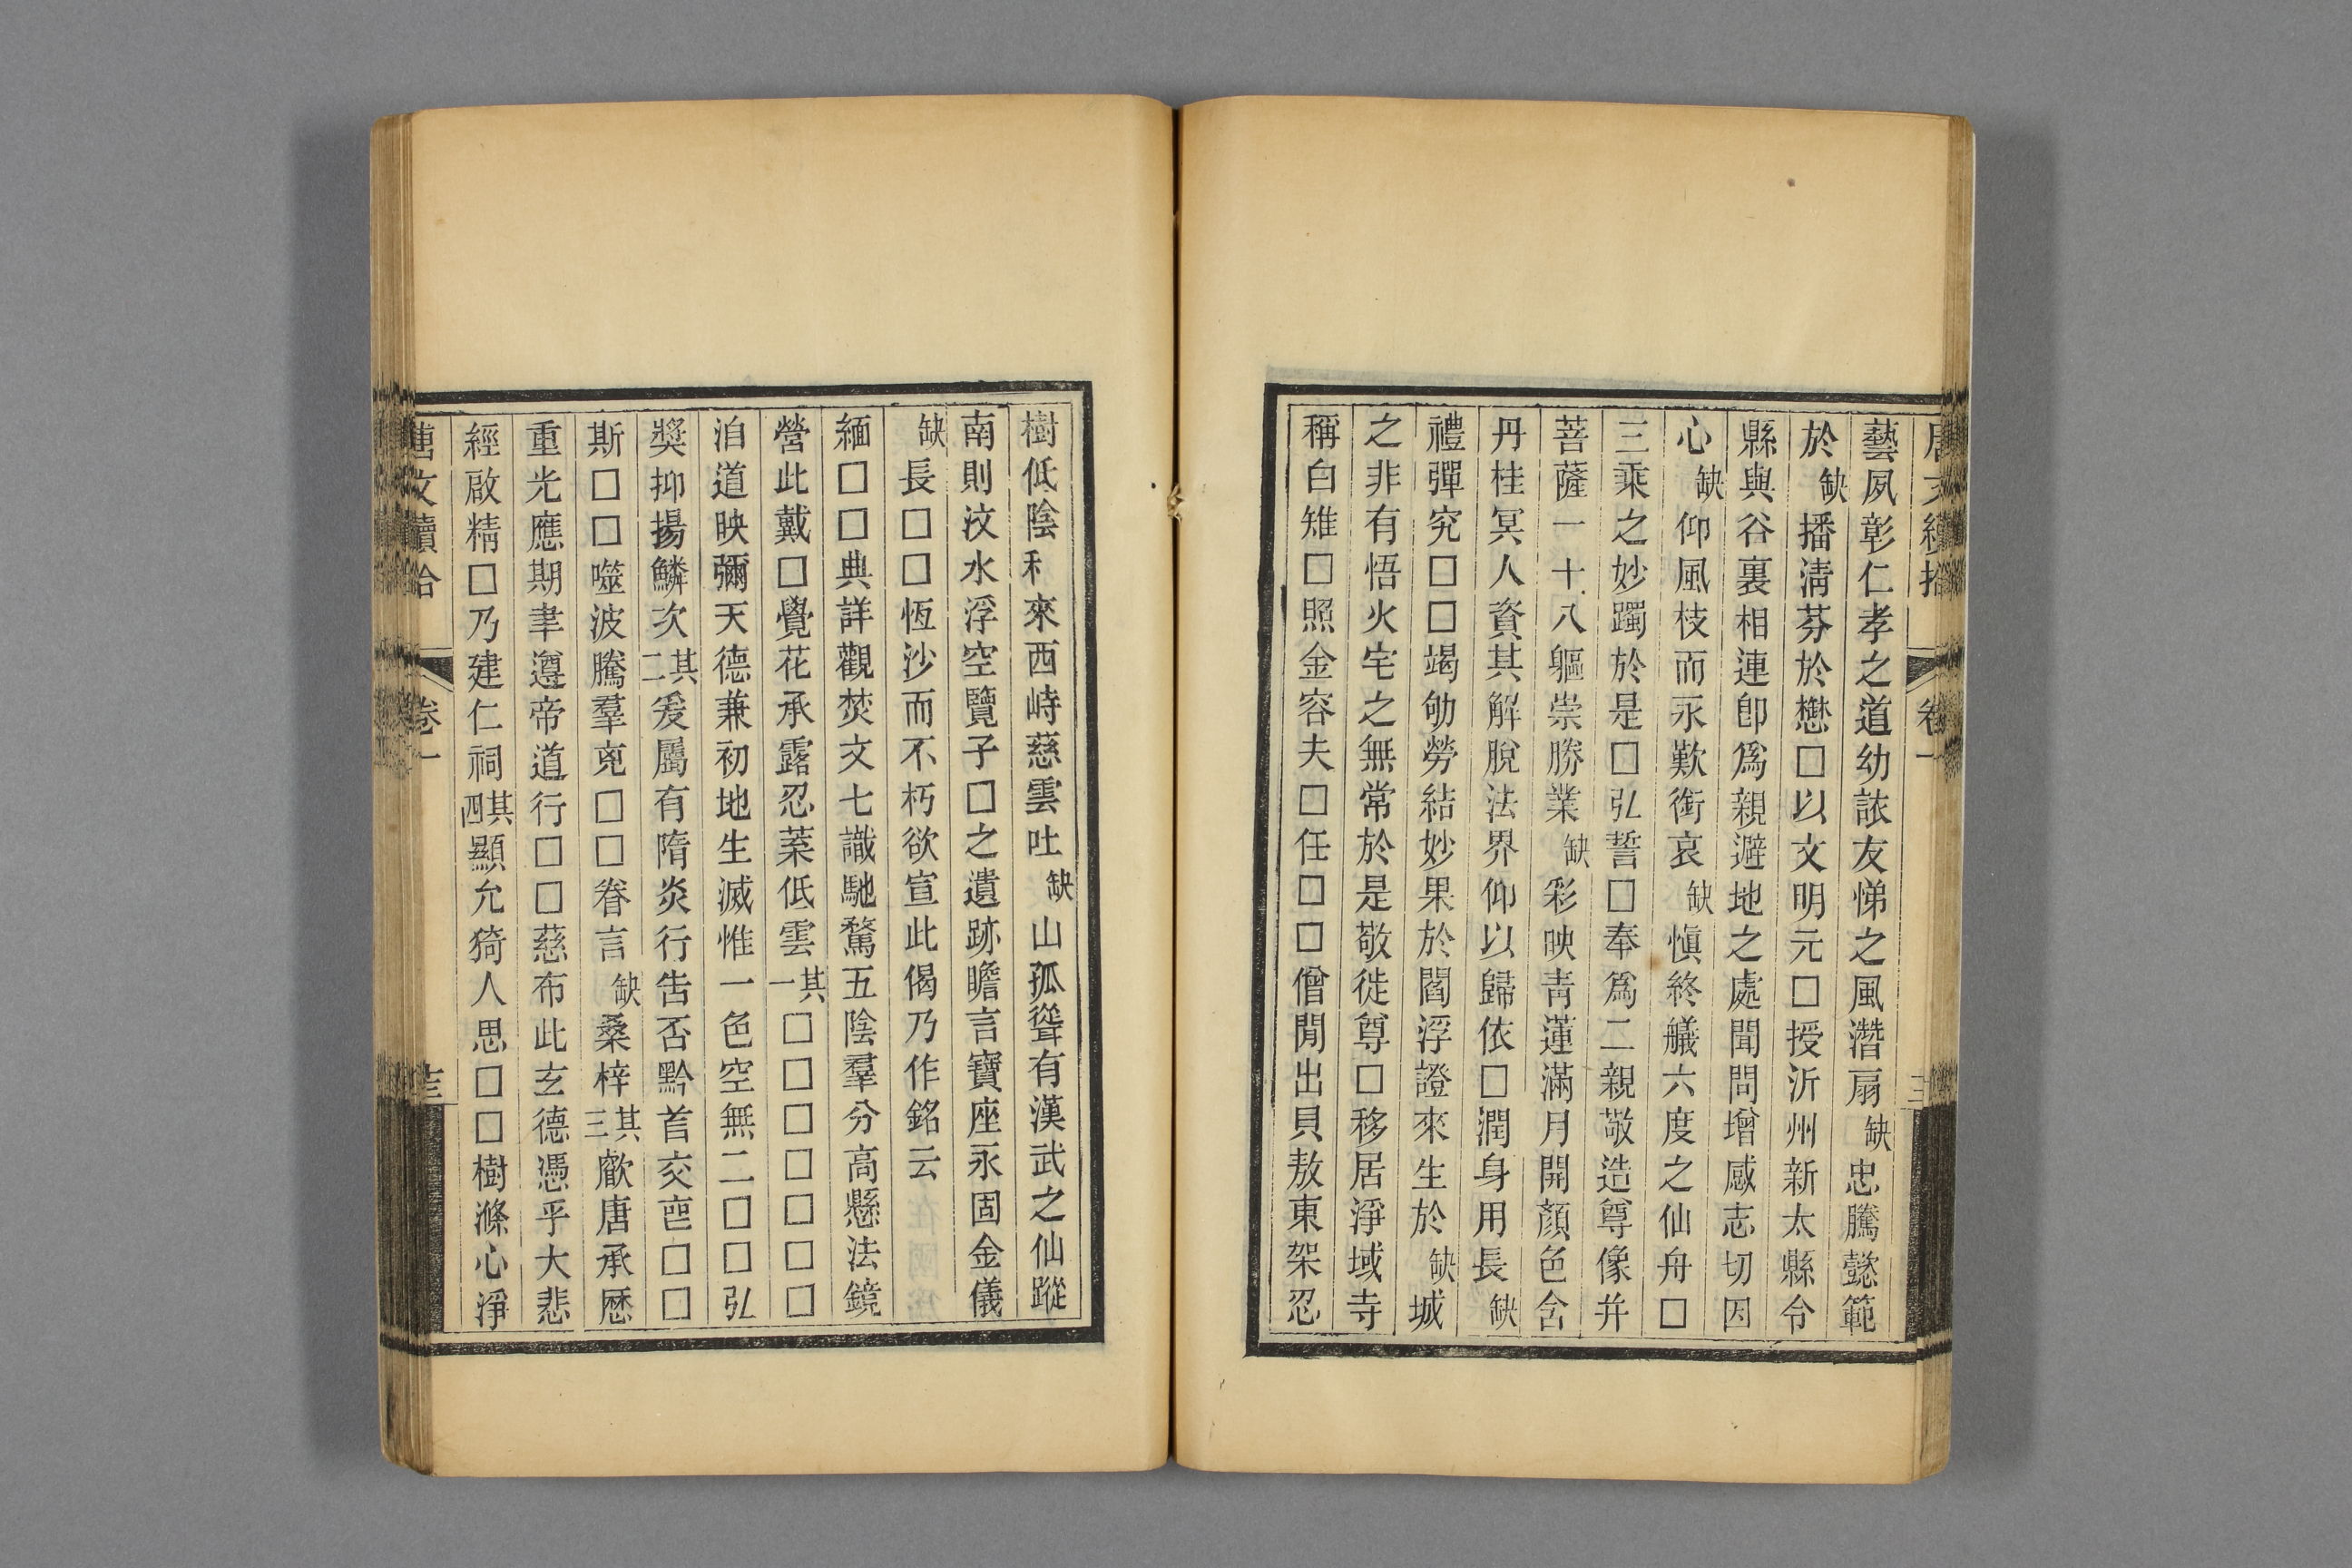 藝夙彰仁孝之道幼詃友悌之風潛扇缺忠騰懿範
於缺播淸芬於懋□以文明元□授沂州新太縣令
縣與谷裏相連卽爲親避地之處聞問增感志切因
心缺仰風枝而永歎銜哀缺愼終艤六度之仙舟□
三乘之妙躅於是□弘誓□奉爲二親敬造尊像并
菩薩一十八軀崇勝業缺彩映靑蓮滿月開顏色含
丹桂冥人資其解脫法界仰以歸依□潤身用長缺
禮彈究□□竭劬勞結妙果於閻浮證來生於缺城
之非有悟火宅之無常於是敬徙尊□移居淨域寺
稱白雉□照金容夫□任□□僧閒出貝敖東架忍
樹低陰利來西峙慈雲吐缺山孤聳有漢武之仙蹤
南則汶水浮空覽子□之遺跡瞻言寶座永固金儀
缺長□□恆沙而不朽欲宣此偈乃作銘云
緬□□典詳觀焚文七識馳騖五陰羣分高懸法鏡
營此戴□覺花承露忍葉低雲其一□□□□□□□
洎道映彌天德兼初地生滅惟一色空無二□□弘
奬抑揚鱗次其二爰屬有隋炎行告否黔首交喪□□
斯□□噬波騰羣兇□□眷言缺桑梓其三歡唐承歷
重光應期聿遵帝道行□□慈布此玄德憑乎大悲
經啟精□乃建仁祠其四顯允猗人思□□樹滌心淨
唐文續拾 卷一 十三